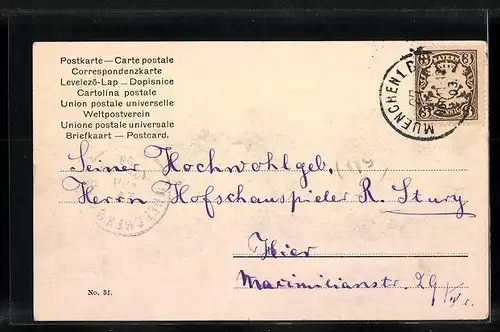 Postkarte — Carte postale
Correspondenzkarte
Levelező-Lap — Dopisnice
Cartolina postale
Union postale universelle
Weltpostverein
Unione postale universale
Briefkaart — Postcard.
MUENCHEN 1
BAYERN
3 3
Seiner Hochwohlgeb.
Herrn Hofschauspieler R. Stury
Hier
Maximilianstr. 29
No. 31.